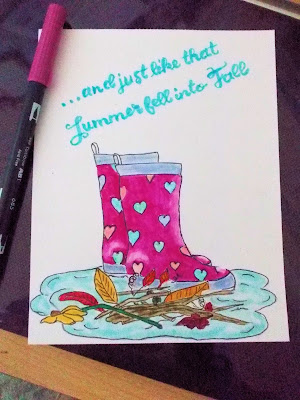 ...and just like that
Summer fell into Fall